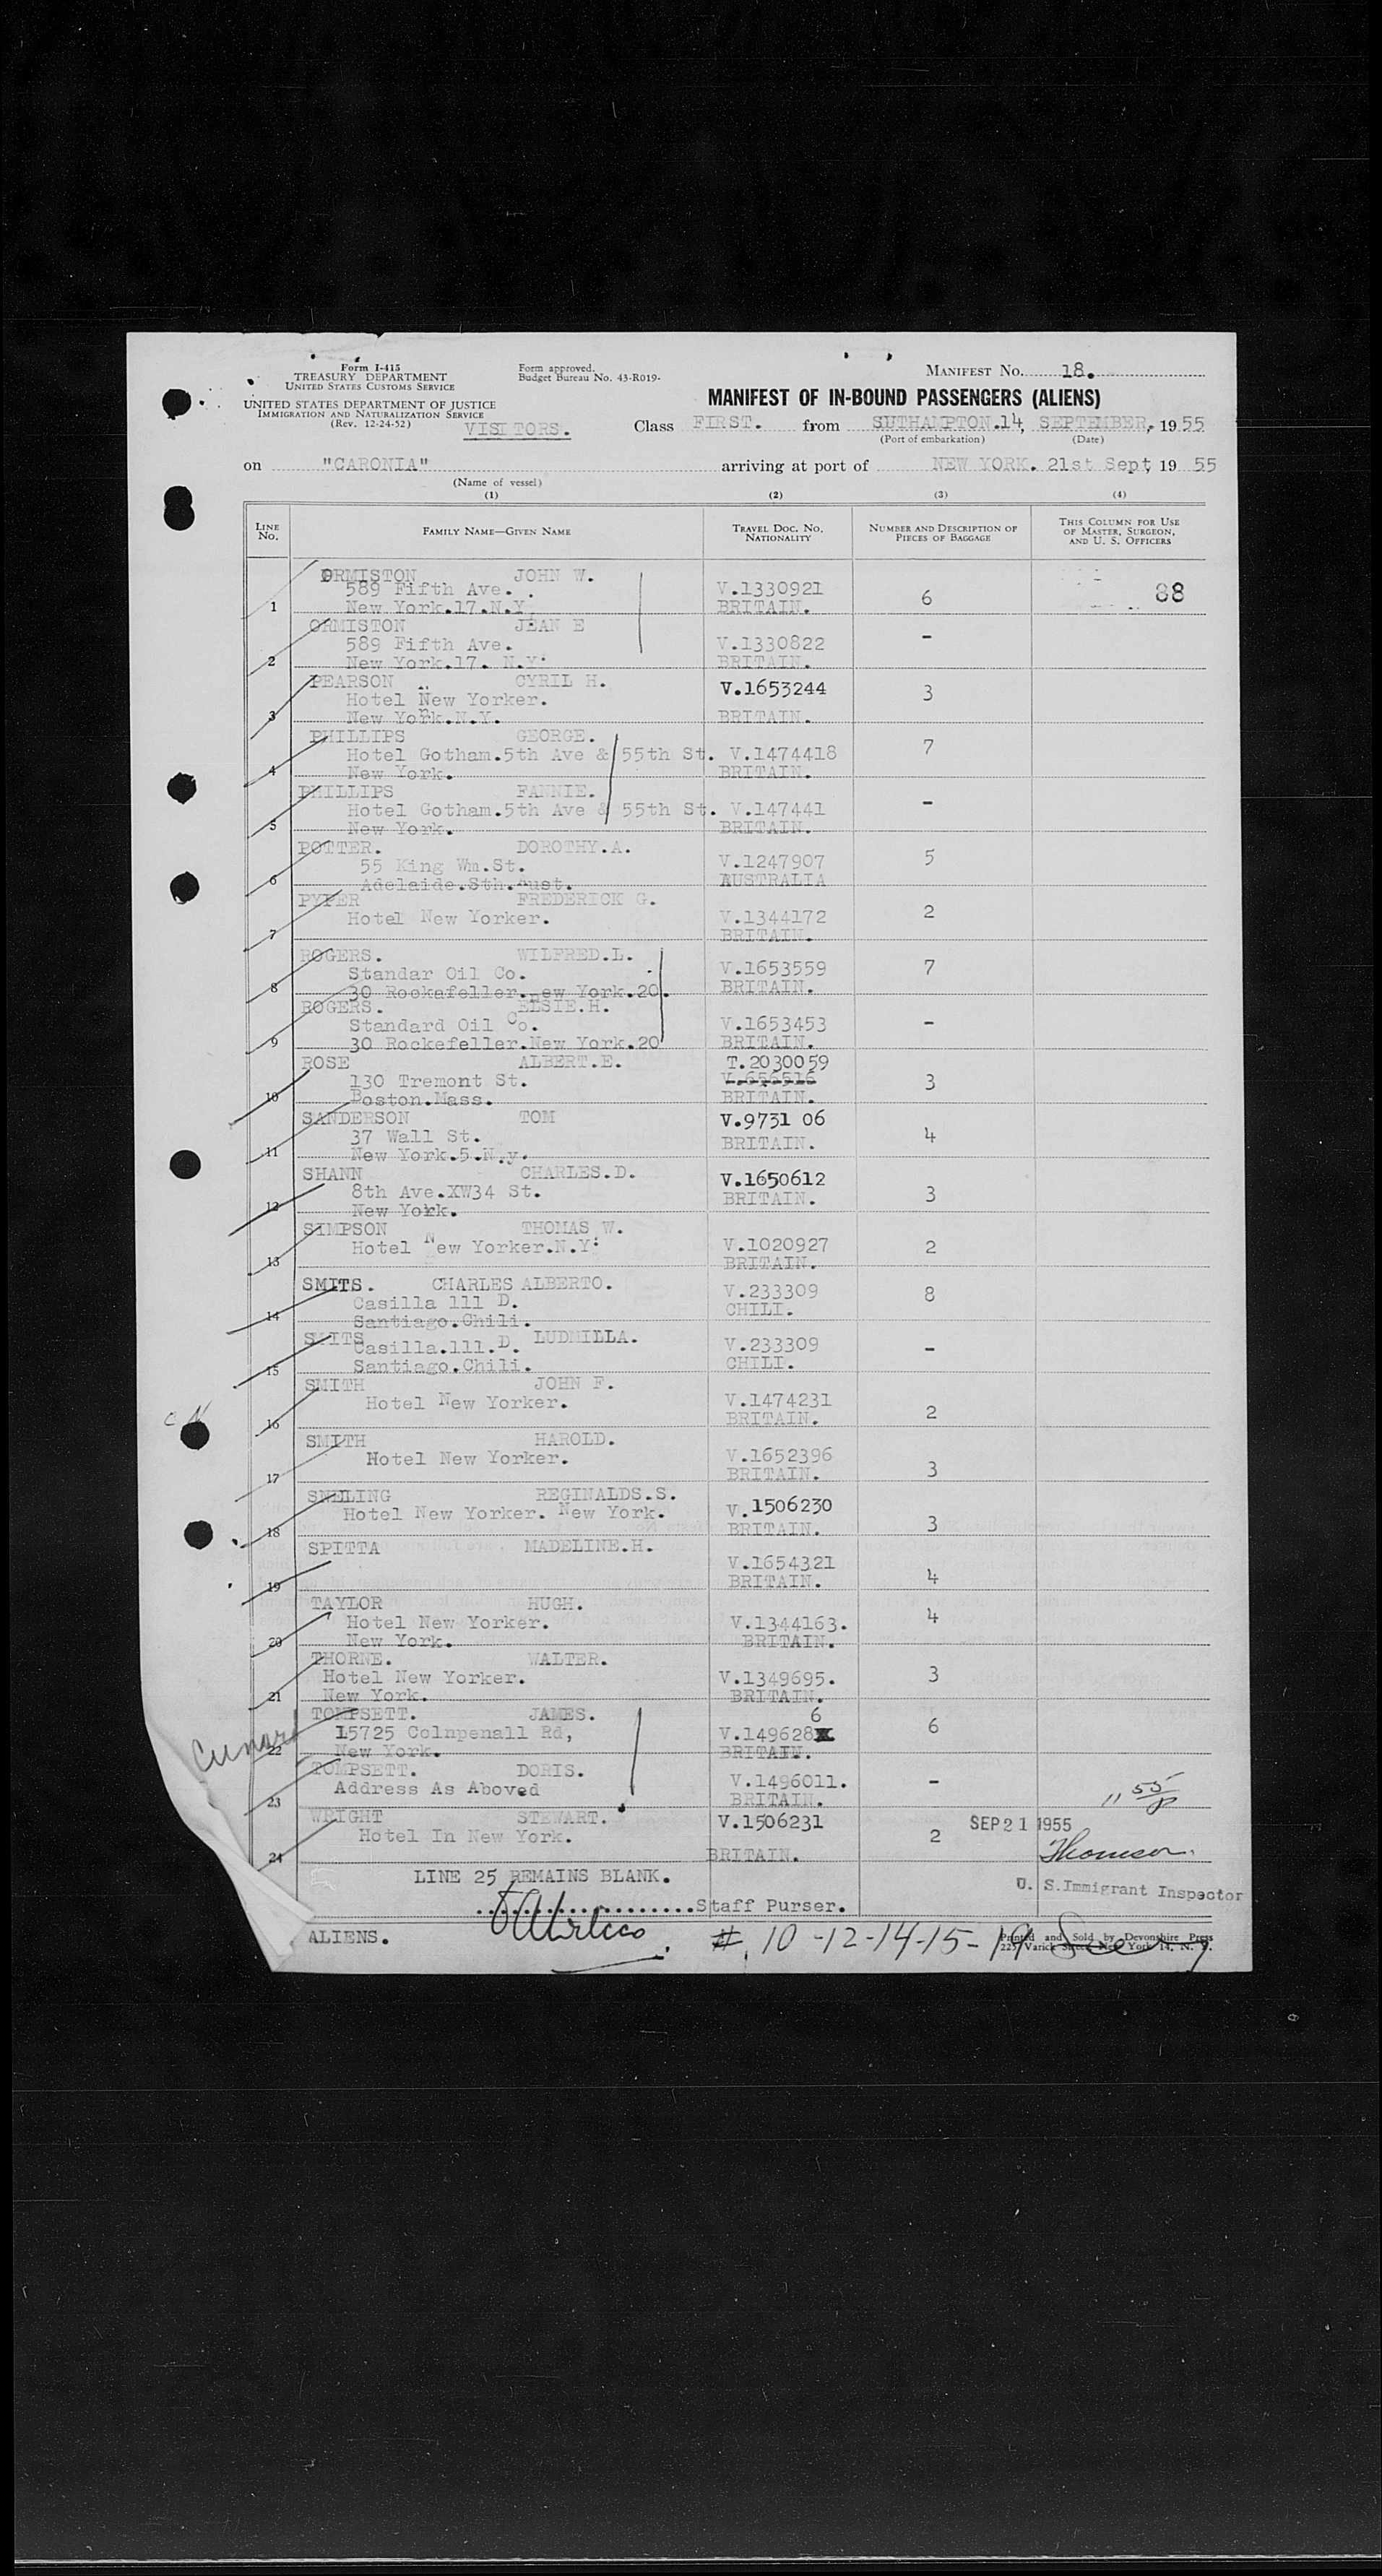 Form I-415
TREASURY DEPARTMENT
UNITED STATES CUSTOMS SERVICE
UNITED STATES DEPARTMENT OF JUSTICE
IMMIGRATION AND NATURALIZATION SERVICE
(Rev. 12-24-52)
VISITORS.
Form approved.
Budget Bureau No. 43-R019-
MANIFEST NO. 18.
MANIFEST OF IN-BOUND PASSENGERS (ALIENS)
Class FIRST. from SUTHAMPTON.14, SEPTEMBER, 1955
(Port of embarkation) (Date)
on "CARONIA" arriving at port of NEW YORK. 21st Sept, 1955
(Name of vessel)
(1) (2) (3) (4)
LINE NO. FAMILY NAME—GIVEN NAME TRAVEL DOC. NO. NATIONALITY NUMBER AND DESCRIPTION OF PIECES OF BAGGAGE THIS COLUMN FOR USE OF MASTER, SURGEON, AND U. S. OFFICERS
ORMISTON JOHN W.
589 Fifth Ave. V.1330921 88
1 New York.17.N.Y. BRITAIN. 6
ORMISTON JEAN E
589 Fifth Ave. V.1330822 -
2 New York.17. N.Y. BRITAIN.
PEARSON CYRIL H. V.1653244 3
Hotel New Yorker.
3 New York.N.Y. BRITAIN.
PHILLIPS GEORGE. 7
Hotel Gotham.5th Ave & 55th St. V.1474418
4 New York. BRITAIN.
PHILLIPS FANNIE. -
Hotel Gotham.5th Ave & 55th St. V.147441
5 New York. BRITAIN.
POTTER. DOROTHY.A.
55 King Wm.St. V.1247907 5
6 Adelaide.Sth.Aust. AUSTRALIA
PYPER FREDERICK G.
Hotel New Yorker. V.1344172 2
7 BRITAIN.
ROGERS. WILFRED.L.
Standar Oil Co. V.1653559 7
8 30 Rockafeller.New York.20. BRITAIN.
ROGERS. ELSIE.H.
Standard Oil Co. V.1653453 -
9 30 Rockefeller.New York.20 BRITAIN.
ROSE ALBERT.E. T.2030059
130 Tremont St. V.656516 3
10 Boston.Mass. BRITAIN.
SANDERSON TOM V.9731 06
37 Wall St. BRITAIN. 4
11 New York.5.N.y.
SHANN CHARLES.D. V.1650612
8th Ave.XW34 St. BRITAIN. 3
12 New York.
SIMPSON THOMAS W.
Hotel New Yorker.N.Y. V.1020927 2
13 BRITAIN.
SMITS. CHARLES ALBERTO. V.233309 8
Casilla 111 D. CHILI.
14 Santiago.Chili.
SMITS LUDMILLA.
Casilla.111.D. V.233309 -
15 Santiago.Chili. CHILI.
SMITH JOHN F.
Hotel New Yorker. V.1474231
16 BRITAIN. 2
SMITH HAROLD.
Hotel New Yorker. V.1652396
17 BRITAIN. 3
SNELING REGINALDS.S.
Hotel New Yorker. New York. V.1506230
18 BRITAIN. 3
SPITTA MADELINE.H.
V.1654321
19 BRITAIN. 4
TAYLOR HUGH. 4
Hotel New Yorker. V.1344163.
20 New York. BRITAIN.
THORNE. WALTER.
Hotel New Yorker. V.1349695. 3
21 New York. BRITAIN.
TOMPSETT. JAMES. 6
15725 Colnpenall Rd, V.149628 6
22 New York. BRITAIN.
Cunard
TOMPSETT. DORIS.
Address As Aboved V.1496011. -
23 BRITAIN.
11 55
WEIGHT STEWART. V.1506231 SEP 21 1955
Hotel In New York. 2
24 BRITAIN. Thomson.
LINE 25 REMAINS BLANK.
U. S.Immigrant Inspector
Staff Purser.
ALIENS. #. 10-12-14-15-19
Printed and Sold by Devonshire Press
225 Varick Street, New York 14, N. Y.